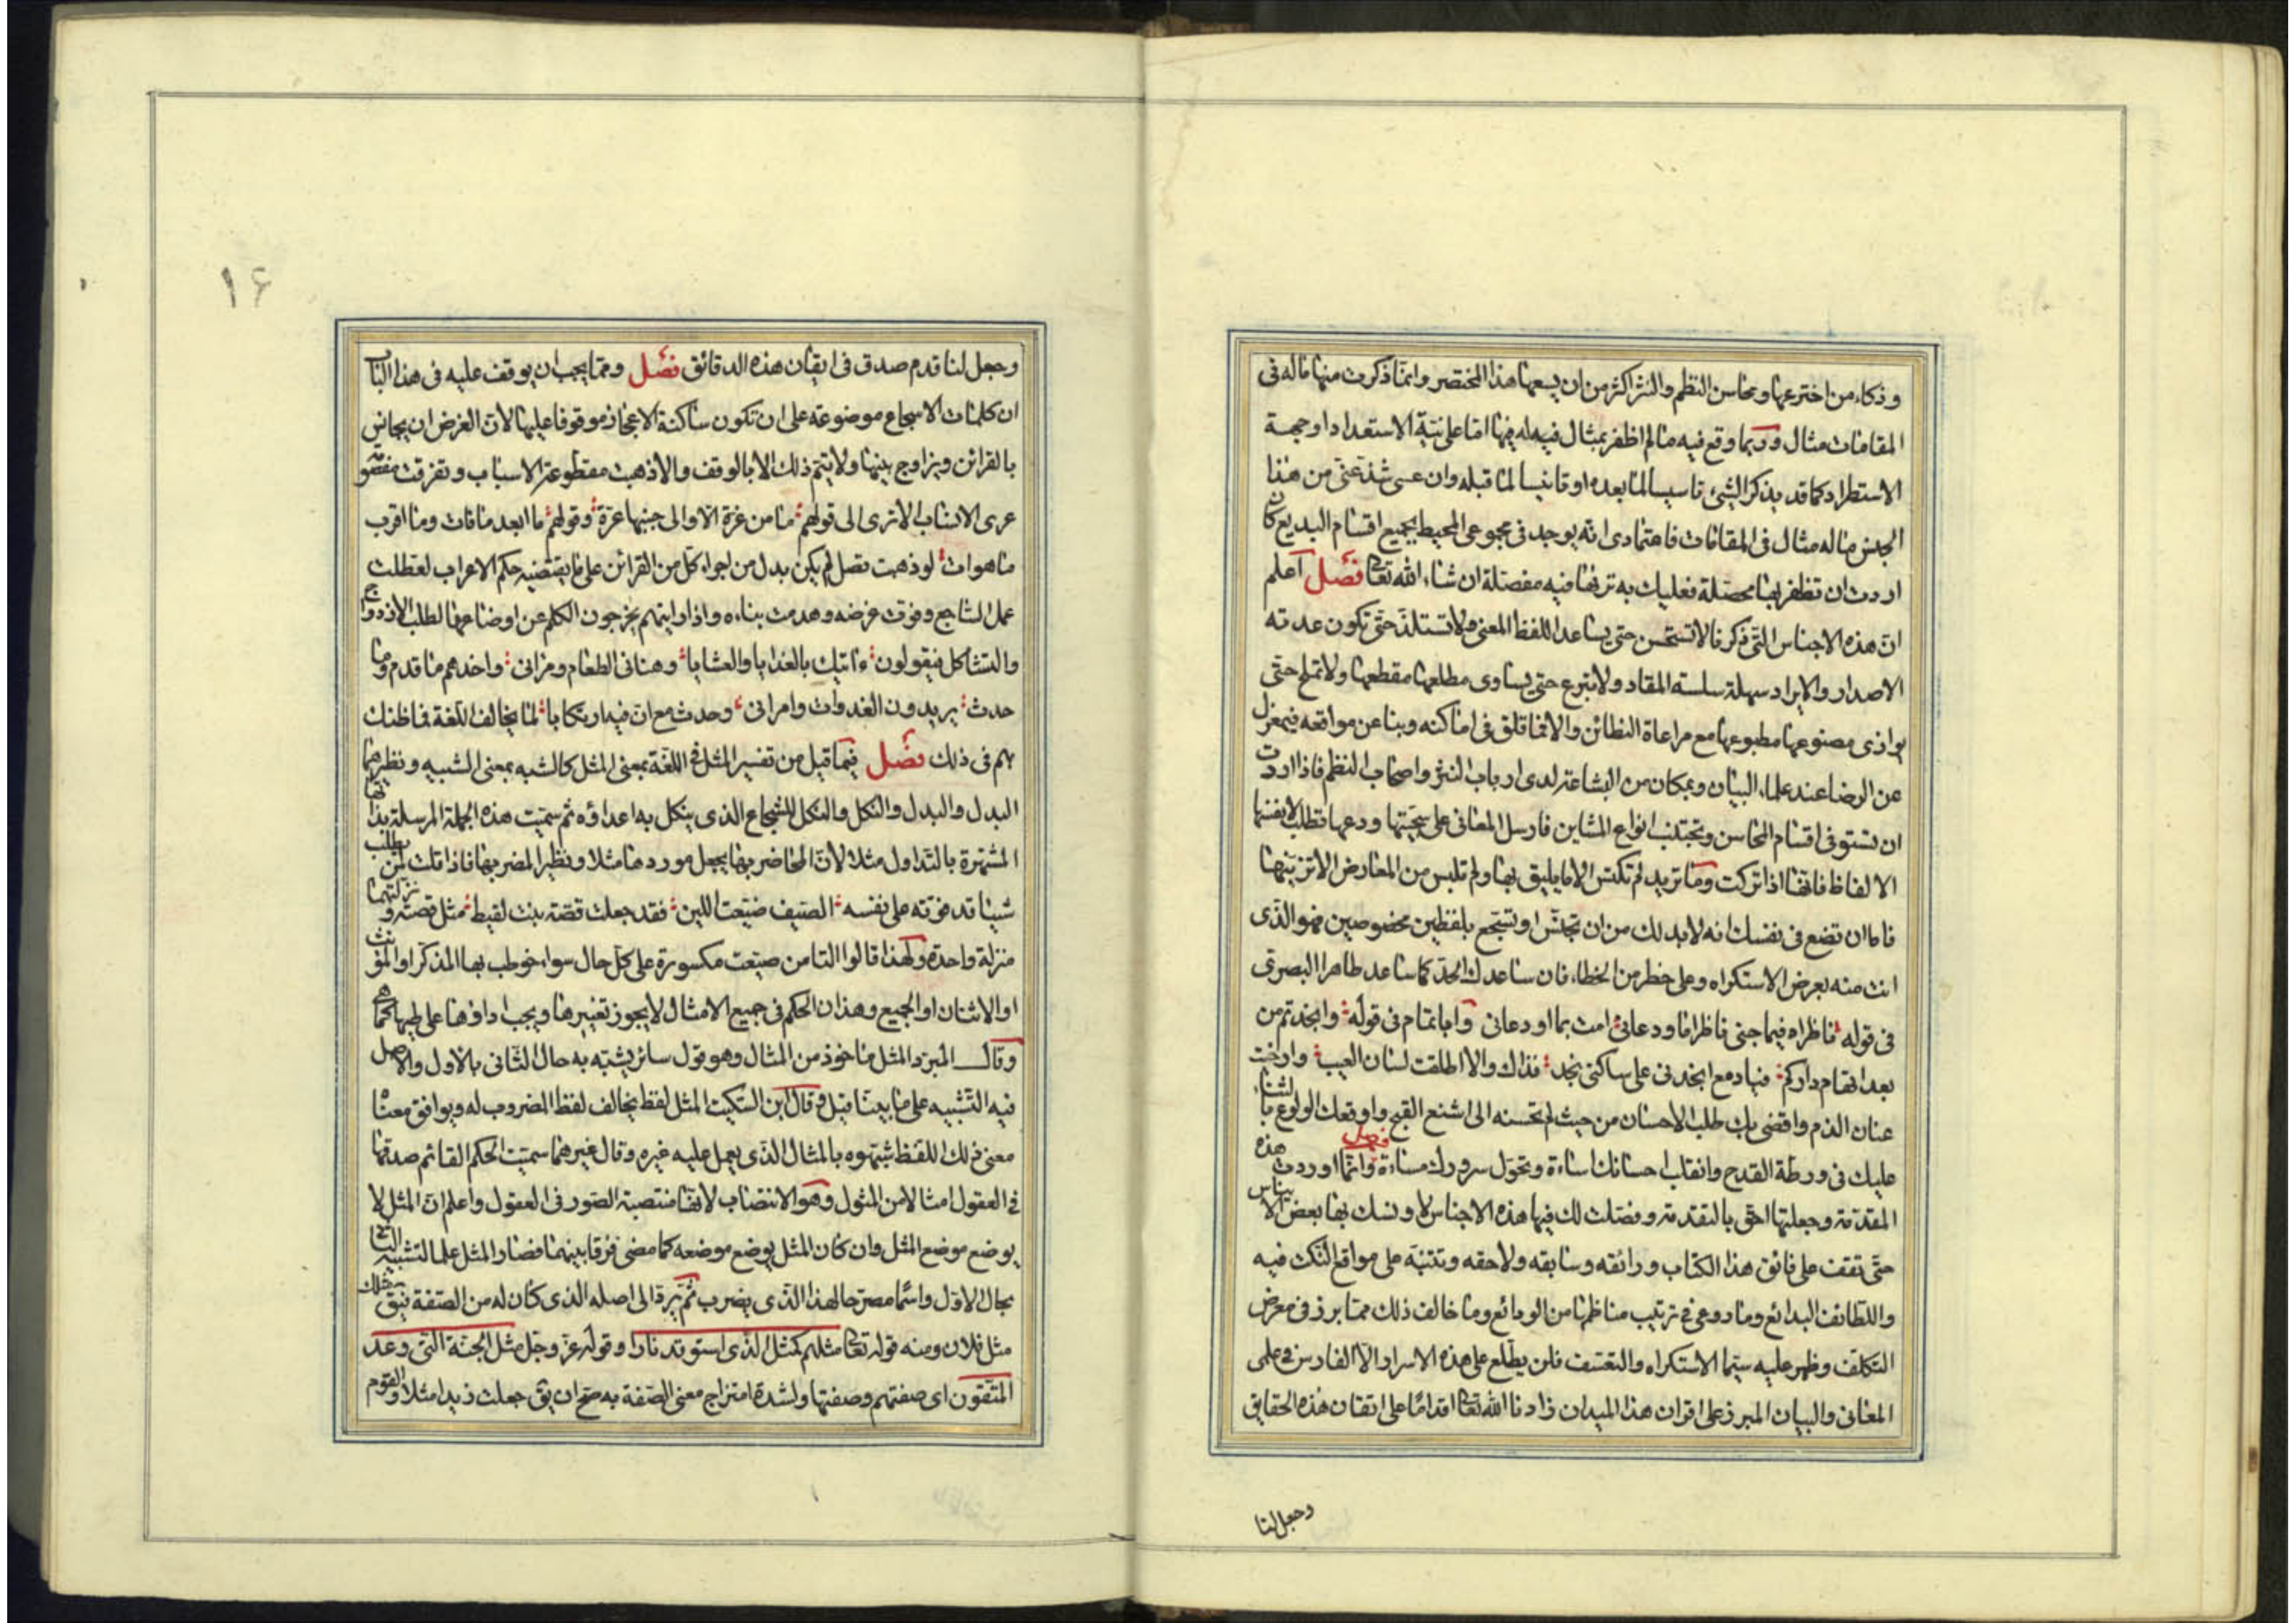 وذكاء من اخترعها ومحاسن النظم والنثر اكثر من ان يسعها هذا المختصر وانما ذكرت منها ما له فى
المقامات مثال وربما وقع فيه ما لم اظفر بمثال فيه له فيها اما على نية الاستعداد او جهة
الاستطراد كما قد يذكر الشئ تاسيسا لما بعده او تانيسا لما قبله وان عسى شذ عنى من هذا
الجنس ما له مثال فى المقامات فاعتمادى انه يوجد فى مجموعى المحيط بجميع اقسام البديع فان
اردت ان تظفر بها محصلة فعليك به ترها فيه مفصلة ان شاء الله تعا فصل اعلم
ان هذه الاجناس التى ذكرنا لا تستحسن حتى يساعد اللفظ المعنى ولا تستلذ حتى تكون عذبة
الاصدار والايراد سهلة سلسة المقاد ولا تبرع حتى يساوى مطلعها مقطعها ولا تملح حتى
يوازى مصنوعها مطبوعها مع مراعاة النظائر والا فما قلق فى اماكنه ونبا عن مواقعه فبمعزل
عن الرضا عند علماء البيان وبمكان من البشاعة لدى ارباب النثر واصحاب النظم فاذا اردت
ان تستوفى اقسام المحاسن وتجتنب انواع المشاين فارسل المعانى على سجيتها ودعها تطلب لانفسها
الالفاظ فانها اذا تركت وما تريد لم تكتس الا ما يليق بها ولم تلبس من المعارض الا تزيينها
فاما ان تضع فى نفسك انه لابد لك من ان تجنس او تسجع بلفظين مخصوصين فهو الذى
انت منه بعرض الاستكراه وعلى خطر من الخطاء فان ساعدك الجد كما ساعد طاهرا البصرى
فى قوله ناظراه فيما جنى ناظراه اودعانى امت بما اودعانى وابا تمام فى قوله وانجدتم من
بعد اتهام داركم فيا دمع انجدنى على ساكنى نجد فذاك والا اطلقت لسان العيب وارخت
عنان الذم وافضى بك طلب الاحسان من حيث لم تحسنه الى اشنع القبح واوقعك الولوع بالثناء
عليك فى ورطة القدح وانقلب احسانك اساءة وتحول سرورك مساءة فصل وانما اوردت هذه
المقدمة وجعلتها احق بالتقدمة وفصلت لك فيها هذه الاجناس لاونسك بها بعض الايناس
حتى تقف على فائق هذا الكتاب ورائقه وسابقه ولاحقه وتتنبه على مواقع النكت فيه
واللطائف البدائع وما روعى فى ترتيب مناظمها من الودائع وما خالف ذلك مما برز فى معرض
التكلف وظهر عليه سيما الاستكراه والتعسف فلن يطلع على هذه الاسرار الا الفارس فى علمى
المعانى والبيان المبرز على اقران هذا الميدان زادنا الله تعا اقداما على اتقان هذه الحقايق
وجعل لنا
١٦
وجعل لنا قدم صدق فى ايقان هذه الدقائق فصل ومما يجب ان يوقف عليه فى هذا الباب
ان كلمات الاسجاع موضوعة على ان تكون ساكنة الاعجاز موقوفا عليها لان الغرض ان يجانس
بالقرائن ويزاوج بينها ولا يتم ذلك الا بالوقف والا ذهبت مقطوعة الاسباب وتفرقت مفصومة
عرى الانساب الا ترى الى قولهم ما من غرة الا والى جنبها عرة وقولهم ما ابعد ما فات وما اقرب
ما هو ات لو ذهبت تصل لم يكن بد من اجراء كل من القرائن على ما يقتضيه حكم الاعراب لعطلت
عمل الساجع وفوت غرضه وهدمت بناءه واذا رايتهم يخرجون الكلم عن اوضاعها لطلب الازدواج
والتشاكل فيقولون ءاتيك بالغدايا والعشايا وهنانى الطعام ومرانى واخذهم ما قدم وما
حدث يريدون الغدوات وامرانى وحدث مع ان فيه ارتكابا لما يخالف اللغة فما ظنك
بهم فى ذلك فصل فيما قيل من تفسير المثل فى اللغة بمعنى المثل كالشبه بمعنى الشبيه ونظيرهما
البدل والبدل والنكل والنكل للشجاع الذى ينكل به اعداؤه ثم سميت هذه الجملة المرسلة بذاتها
المشتهرة بالتداول مثلا لان المحاضر بها يجعل موردها مثلا ونظيرا لمضربها فاذا قلت لمن يطلب
شيئا قد فوته على نفسه الصيف ضيعت اللبن فقد جعلت قصة بنت لقيط مثل قصته ونزلتهما
منزلة واحدة ولهذا قالوا التا من ضيعت مكسورة على كل حال سواء خوطب بها المذكر او المونث
او الاثنان او الجميع وهذا الحكم فى جميع الامثال لا يجوز تغييرها ويجب اداؤها على طيها كما هى
وقال المبرد المثل ماخوذ من المثال وهو قول سائر يشبه به حال الثانى بالاول والاصل
فيه التشبيه على ما بينا قبل وقال ابن السكيت المثل لفظ يخالف لفظ المضروب له ويوافق معناه
معنى ذلك اللفظ شبهوه بالمثال الذى يعمل عليه غيره وقال غيرهما سميت الحكم القائم صدقها
فى العقول امثالا من المثول وهو الانتصاب لانها منتصبة الصور فى العقول واعلم ان المثل لا
يوضع موضع المثل وان كان المثل يوضع موضعه كما مضى فرقا بينهما فصار المثل علما لتشبيه الثانى
بحال الاول واسما مصرحا لهذا الذى يضرب ثم يرد الى اصله الذى كان له من الصفة فيق مثلك
مثل فلان ومنه قوله تعا مثلهم كمثل الذى استوقد نارا وقوله عز وجل مثل الجنة التى وعد
المتقون اى صفتهم وصفتها ولشدة امتزاج معنى الصفة به صح ان يق جعلت زيدا مثلا والقوم